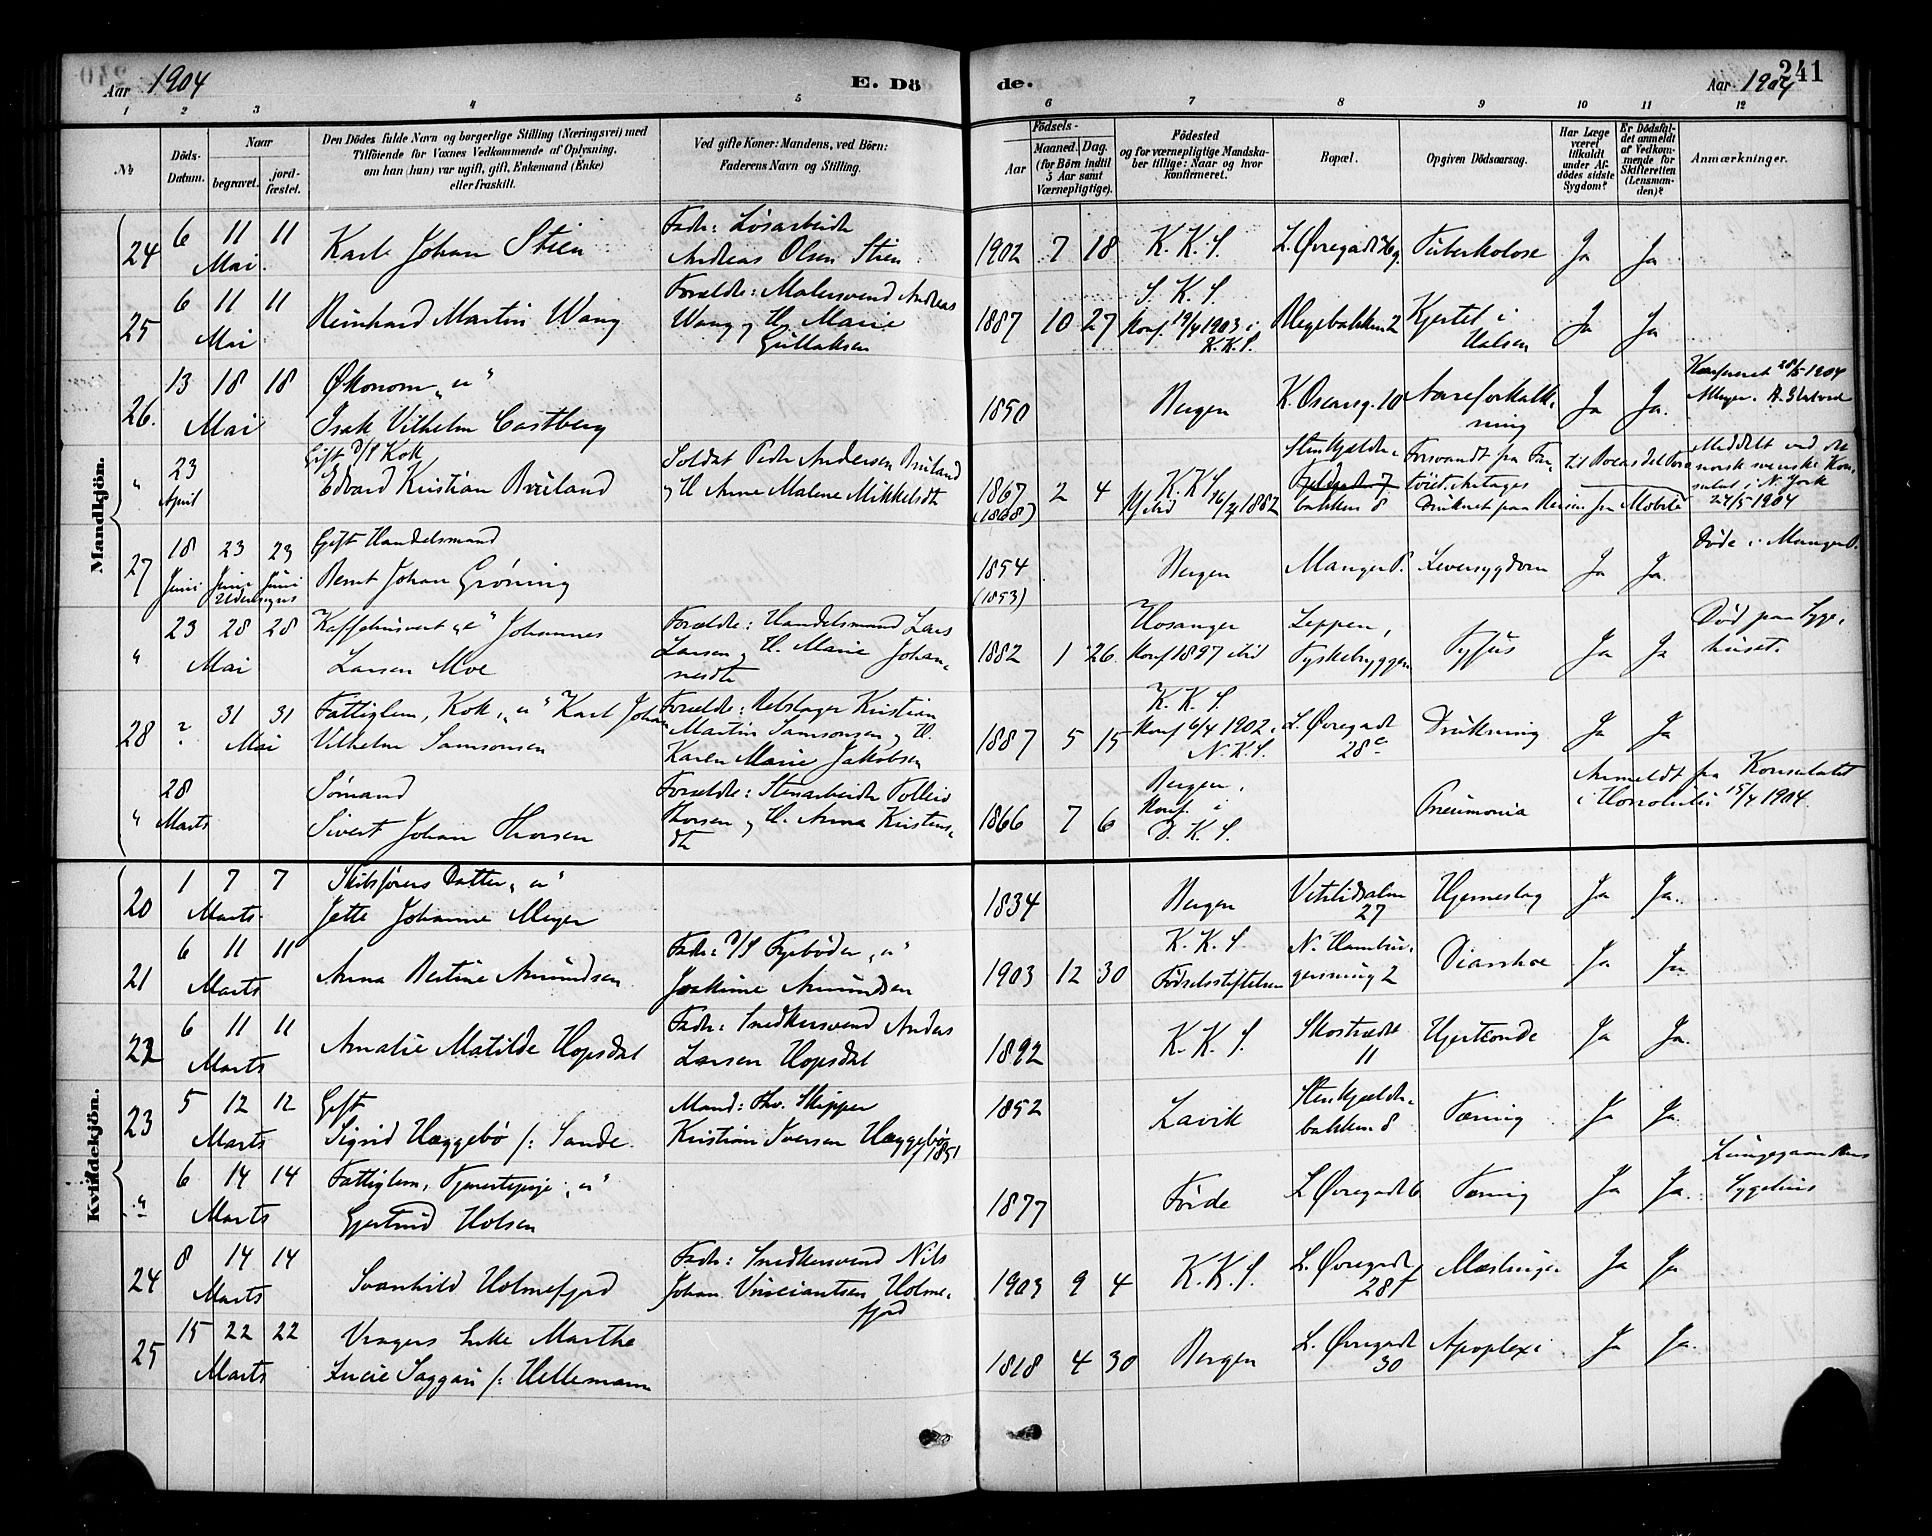 Aar 1904 E. Dö
de. Aar 1904 241
1 2 3 4 5 6 7 8 9 10 11 12
No
Döds-Datum.
Naar
begravet.
jord-fæstet.
Den Dödes fulde Navn og borgerlige Stilling (Næringsvei) med
Tilföiende for Voxnes Vedkommende af Oplysning,
om han (hun) var ugift, gift, Enkemand (Enke)
eller fraskilt.
Ved gifte Koner: Mandens, ved Börn:
Faderens Navn og Stilling.
Födsels-
Aar
Maaned. Dag.
(for Börn indtil
5 Aar samt
Værnepligtige).
Födested
og for værnepligtige Mandska-
ber tillige: Naar og hvor
konfirmeret.
Bopæl.
Opgiven Dödsaarsag.
Har Læge
været
tilkaldt
under Af-
dödes sidste
Sygdom?
Er Dödsfal-
det anmeldt
af Vedkom-
mende for
Skifteretten
(Lensman-
den)?
Anmærkninger.
Mandkjön.
24 6 11 11 Mai
Karl Johan Stien
Fader: Løsarbeider
Andreas Olsen Stien
1902 7 18 K. K. S. L. Øvregadt Tuberkolose Ja Ja
25 6 11 11 Mai
Reinhard Martin Wang
Forældre: Malersvend Andreas
Wang og H. Marie
Gullaksen
1887 10 27 S. K. S.
Konf. 19/4 1903 i
K. K. S.
Kjertel i
Halsen Ja Ja
26. 13 18 18 Mai
Økonom „u“
Isak Vilhelm Castberg
1850 Bergen K. Oscarsg. 10 Aareforkalk-
ning Ja Ja.
28/5 1904
" 23 April
Gift D/S Kok
Edvard Kristian Bruland
Soldat Peder Andersen Bruland
og H. Anne Malene Mikkelsdtr
1867
(1868) 2 4 K. K. S. 1882
Stenkjælder-
bakken 8
Forsvandt fra Far-
til Bocas del Toro
Druknet paa Reisen fra Mobile
Meddelt ved de
norsk svenske Kon-
sulat i N. York
24/5 1904
27 18 Juni 23 Juni 23 Juni
Gift Handelsmand
Bernt Johan Grøning
1854
(1853) Bergen Manger P. Leversygdom Ja Ja.
Døde i Manger P.
" 23 28 28 Mai
Kaffehusvert „u“ Johannes
Larsen Moe
Forældre: Handelsmand Lars
Larsen og H. Marie Johan-
nesdtr
1882 1 26 Hosanger
Konf 1897 ibid
Leppen,
Tyskebryggen
Tyfus Ja Ja
Død paa Syge-
huset.
28 ? 31 31 Mai
Fattiglem, Kok, „u“ Karl Johan
Vilhelm Samsonsen
Forældre: Rebslager Kristian
Martin Samsonsen og H.
Karen Marie Jakobsen
1887 5 15 K. K. S.
Konf 6/4 1902 i
N. K. S.
L. Øvregadt
28c
Drukning Ja Ja
" 28 Marts
Sømand
Sivert Johan Thorsen
Forældre: Stenarbeider Tolleiv
Thorsen og H. Anna Kristens-
dtr
1866 7 6 Bergen,
Konf. i
D. K. S.
Pneumonia
Anmeldt fra Konsulatet
i Honolulu 15/4 1904.
Kvindekjön.
20 1 7 7 Marts
Skibsførers Datter „u“
Jette Johanne Meyer
1834 Bergen Vetrlidsalm
27 Hjerneslag Ja Ja.
21 6 11 11 Marts
Anna Bertine Amundsen
Fader: D/S Fyrbøder „u“
Joakime Amundsen
1903 12 30 K. K. S.
Fødselsstiftelsen
N. Hambur-
gersmug 2
Diarrhoe Ja Ja
22 6 11 11 Marts
Amalie Matilde Hopsdal
Fader: Snedkersvend Anders
Larsen Hopsdal
1892 K. K. S. Skostrædet
11 Hjerteonde Ja Ja.
23 5 12 12 Marts
Gift
Sigrid Haggebø f: Sande
Mand: Skipper
Kristian Iversen Haggebø 1851
1852 Lavik Stenkjælder-
bakken 8 Tæring Ja Ja.
" 6 14 14 Marts
Fattiglem, Tjenestepige „u“
Gjertrud Holsen
1877 Førde L. Øvregadt 6 Tæring Ja Ja.
Lungegaardens
Sygehus
24 8 14 14 Marts
Svanhild Holmefjord
Fader: Snedkersvend Nils
Johan Holme-
fjord
1903 9 4 K. K. S. L. Øvregadt
28f Mæslinger Ja Ja
25 15 22 22 Marts
Vragers Enke Marthe
Lucie Saggau f: Hellemann
1818 4 30 Bergen L. Øvregadt
30 Apoplexi Ja Ja.